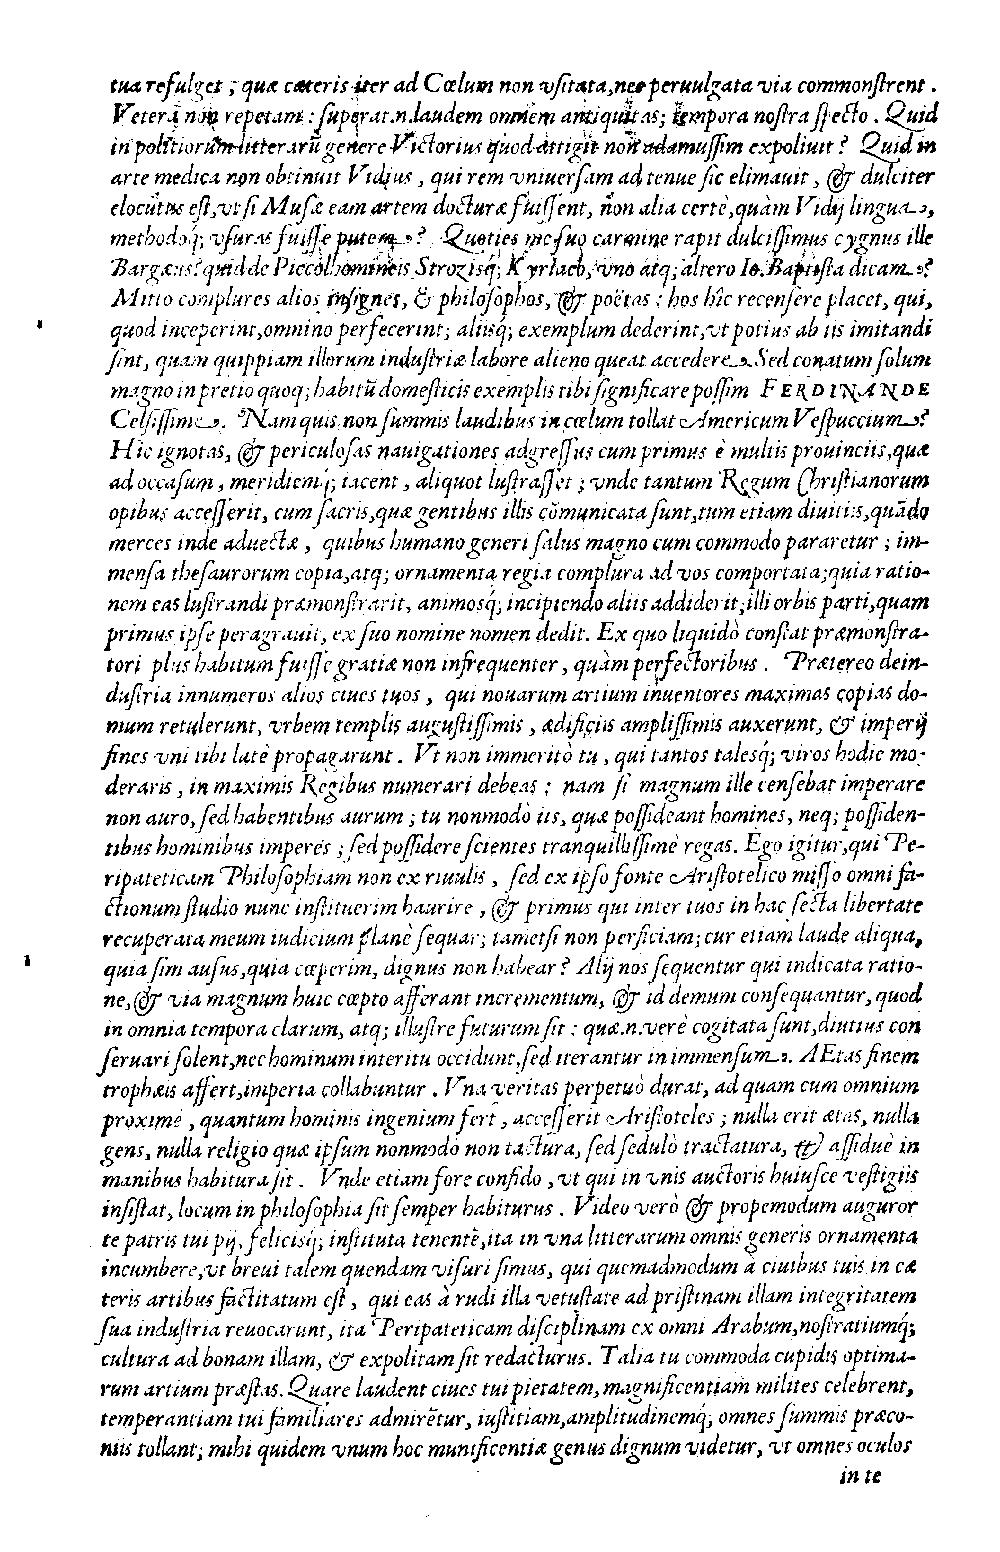 tua refulget ; quæ cæteris iter ad Cœlum non vsitata, nec peruulgata via commonstrent .
Vetera non repetam : superat.n. laudem omnem antiquitas; tempora nostra specto . Quid
in politiorum litterarū genere Victorius quod attigit non adamussim expoliuit ? Quid in
arte medica non obtinuit Vidius , qui rem vniuersam ad tenue sic elimauit , & dulciter
elocutus est, vt si Musæ eam artem docturæ fuissent, non alia certè, quàm Vidij lingua,
methodoq́; vsuras fuisse putem ? Quoties me suo carmine rapit dulcissimus cygnus ille
Bargæus? quid de Piccolhomineis Strozisq́; Kyriaco, vno atq; altero Io. Baptista dicam?
Mitto complures alios insignes, & philosophos, & poëtas : hos hîc recensere placet, qui,
quod inceperint, omnino perfecerint; aliisq́; exemplum dederint, vt potius ab iis imitandi
sint, quam quippiam illorum industriæ labore alieno queat accedere. Sed conatum solum
magno in pretio quoq; habitū domesticis exemplis tibi significare possim FERDINANDE
Celsissime. Nam quis non summis laudibus in cœlum tollat Americum Vespuccium?
Hic ignotas, & periculosas nauigationes adgressus cum primus è multis prouinciis, quæ
ad occasum , meridiemq́; iacent , aliquot lustrasset ; vnde tantum Regum Christianorum
opibus accesserit, cum sacris, quæ gentibus illis cōmunicata sunt, tum etiam diuitiis, quādo
merces inde aduectæ , quibus humano generi salus magno cum commodo pararetur ; im-
mensa thesaurorum copia, atq; ornamenta regia complura ad vos comportata; quia ratio-
nem eas lustrandi præmonstrarit, animosq́; incipiendo aliis addiderit, illi orbis parti, quam
primus ipse peragrauit, ex suo nomine nomen dedit. Ex quo liquidò constat præmonstra-
tori plus habitum fuisse gratiæ non infrequenter , quàm perfectoribus . Prætereo dein-
dustria innumeros alios ciues tuos , qui nouarum artium inuentores maximas copias do-
mum retulerunt, vrbem templis augustissimis , ædificiis amplissimis auxerunt, & imperij
fines vni tibi latè propagarunt . Vt non immeritò tu , qui tantos talesq́; viros hodie mo-
deraris , in maximis Regibus numerari debeas : nam si magnum ille censebat imperare
non auro, sed habentibus aurum ; tu nonmodò iis, quæ possideant homines, neq; possiden-
tibus hominibus imperes ; sed possidere scientes tranquillissimè regas. Ego igitur, qui Pe-
ripateticam Philosophiam non ex riuulis , sed ex ipso fonte Aristotelico misso omni fa-
ctionum studio nunc instituerim haurire , & primus qui inter tuos in hac secta libertate
recuperata meum iudicium planè sequar; tametsi non perficiam; cur etiam laude aliqua,
quia sim ausus, quia cœperim, dignus non habear ? Alij nos sequentur qui indicata ratio-
ne, & via magnum huic cœpto afferant incrementum, & id demum consequantur, quod
in omnia tempora clarum, atq; illustre futurum sit : quæ.n. verè cogitata sunt, diutius con
seruari solent, nec hominum interitu occidunt, sed iterantur in immensum. AEtas finem
trophæis affert, imperia collabuntur . Vna veritas perpetuò durat, ad quam cum omnium
proxime , quantum hominis ingenium fert , accesserit Aristoteles ; nulla erit ætas, nulla
gens, nulla religio quæ ipsum nonmodò non tactura, sed sedulò tractatura, & assiduè in
manibus habitura sit . Vnde etiam fore confido , vt qui in vnis auctoris huiusce vestigiis
insistat, locum in philosophia sit semper habiturus . Video verò & propemodum auguror
te patris tui pij, felicisq́; instituta tenentē, ita in vna litterarum omnis generis ornamenta
incumbere, vt breui talem quendam visuri simus, qui quemadmodum à ciuibus tuis in cæ
teris artibus factitatum est , qui eas à rudi illa vetustate ad pristinam illam integritatem
sua industria reuocarunt, ita Peripateticam disciplinam ex omni Arabum, nostratiumq́;
cultura ad bonam illam, & expolitam sit redacturus. Talia tu commoda cupidis optima-
rum artium præstas. Quare laudent ciues tui pietatem, magnificentiam milites celebrent,
temperantiam tui familiares admirētur, iustitiam, amplitudinemq́; omnes summis præco-
niis tollant; mihi quidem vnum hoc munificentiæ genus dignum videtur, vt omnes oculos
in te